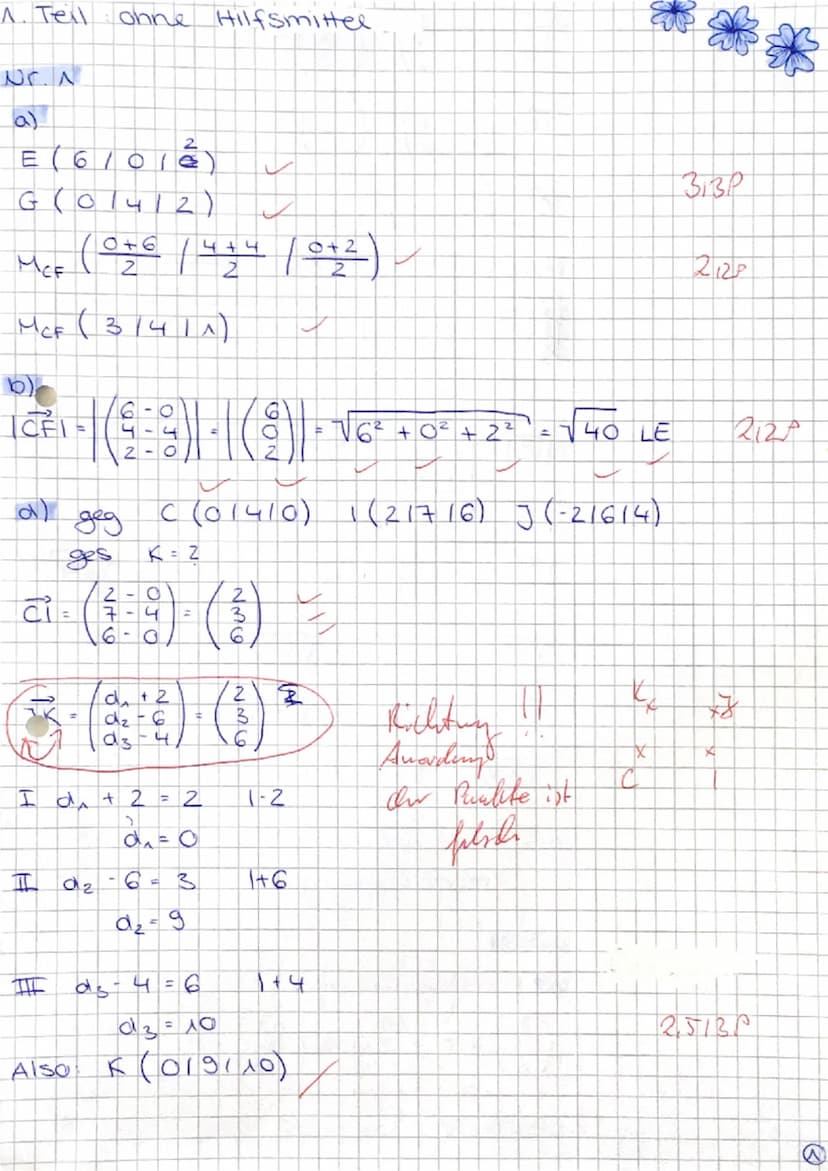 1. Teil ohne Hilfsmittel
Nr. 1
a)
E ( 6 | 0 | 2 )
G ( 0 | 4 | 2 )
3,13P
M_CF ( (0+6)/2 | (4+4)/2 | (0+2)/2 )
2,12P
M_CF ( 3 | 4 | 1 )
b)
|CF→| = |(6 - 0, 4 - 4, 2 - 0)| = |(6, 0, 2)| = √(6² + 0² + 2²) = √40 LE 2,12P
d) geg C (0|4|0) I (2|7|6) J (-2|6|4)
ges K = ?
CI→ = (2 - 0, 7 - 4, 6 - 0) = (2, 3, 6)
JK→ = (d₁ + 2, d₂ - 6, d₃ - 4) = (2, 3, 6)
Richtung !!
Anordnung
der Punkte ist
falsch
K x x J
x x
C I
I d₁ + 2 = 2 |-2
d₁ = 0
II d₂ - 6 = 3 |+6
d₂ = 9
III d₃ - 4 = 6 |+4
d₃ = 10
2,5/3P
Also: K (0|9|10)
1